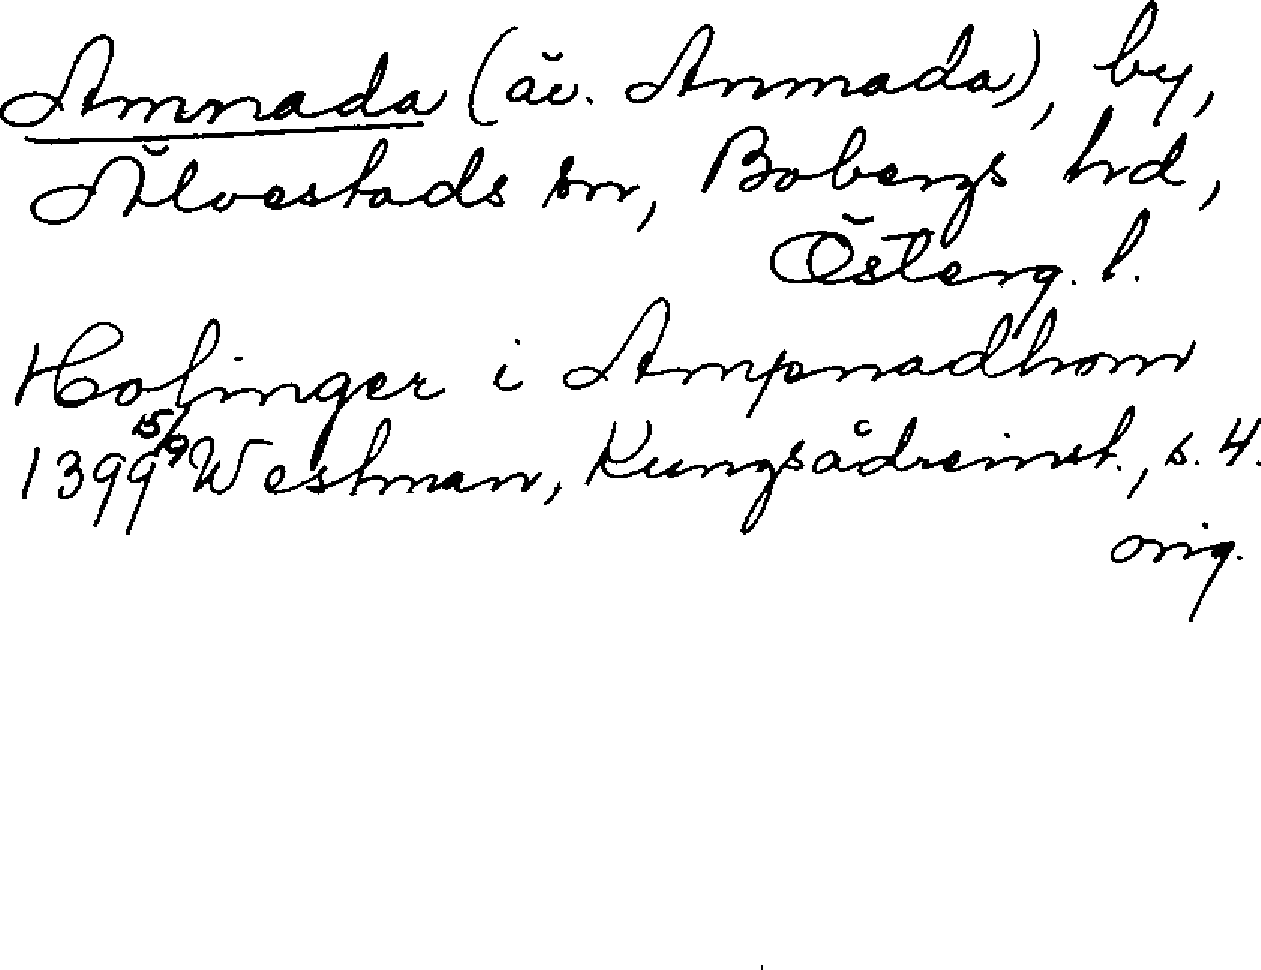 Amnada (äv. Anmada), by,
Älvestads sn, Bobergs hrd,
Österg. l.
Holinger i Ampnadhom
1399 15/9 Westman, Kungsådreinst., s. 4.
orig.